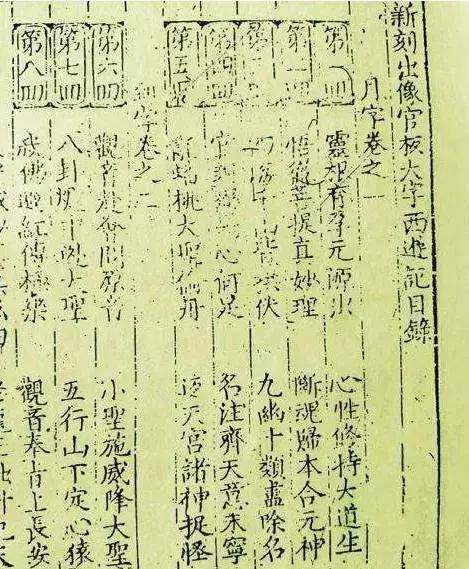 新刻出像官板大字西遊記目錄
月字卷之一
第一回 靈根育孕元源出 心性修持大道生
第二回 悟徹菩提真妙理 斷魂歸本合元神
第 千山皆拱伏 九幽十類盡除名
第四回 官 心何足 名注齊天意未寧
第五回 蟠桃大聖偷丹 天宮諸神捉怪
字卷之二
第六回 觀音赴會問原 小聖施威降大聖
第七回 八卦爐中逃大聖 五行山下定心猿
第八回 我佛造經傳極樂 觀音奉旨上長安